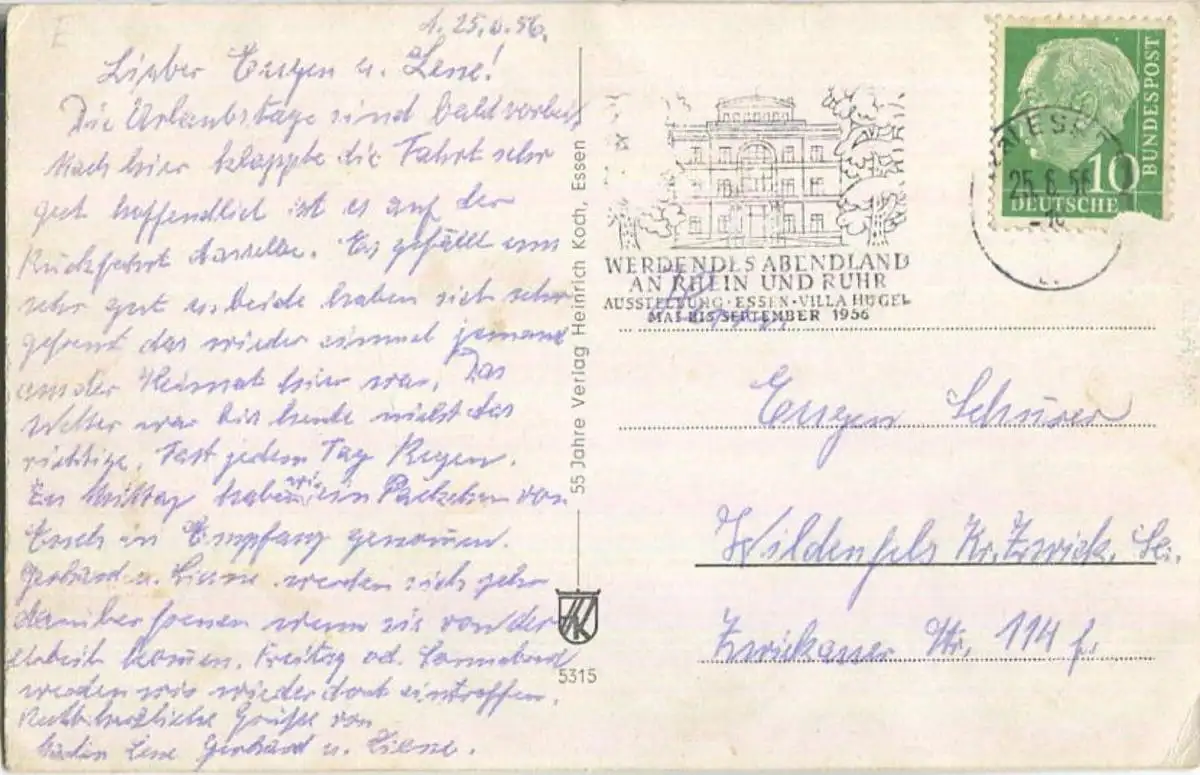 d. 25.6.56.
Lieber Eugen u. Lene!
Die Urlaubstage sind bald vorbei,
nach hier klappte die Fahrt sehr
gut hoffendlich ist es auf der
Rückfahrt dasselbe. Es gefällt uns
sehr gut u. beide haben sich sehr
gefreut das wieder einmal jemand
aus der Heimat hier war. Das
Wetter war bis heute nicht das
richtige. Fast jeden Tag Regen.
Zu Mittag haben wir ein Päckchen von
Euch in Empfang genomen.
Gerhard u. Liesne werden sich sehr
darüber freuen wenn sie von der
Arbeit komen. Freitag od. Sonnabend
werden wir wieder dort eintreffen.
Recht herzliche Grüße von
Lene Gerhard u. Liesne.
55 Jahre Verlag Heinrich Koch, Essen
HK
5315
WERDENDES ABENDLAND
AN RHEIN UND RUHR
AUSSTELLUNG · ESSEN · VILLA HÜGEL
MAI BIS SEPTEMBER 1956
ESSEN
25.6.56
DEUTSCHE
BUNDESPOST
10
Eugen Schürer
Wildenfels Kr. Zwick. Sa.
Zwickauer Str. 114 f.